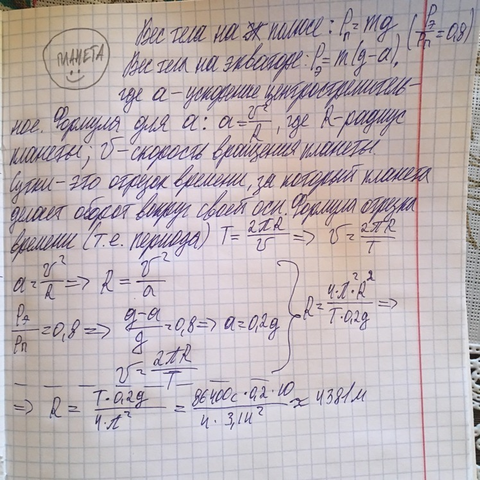 ПЛАНЕТА
Вес тела на полюсе: Pп = mg (Pэ/Pп = 0,8)
Вес тел на экваторе: Pэ = m(g-a),
где a - ускорение центростремитель-
ное. Формула для a: a = v²/R, где R-радиус
планеты, v - скорость вращения планеты.
Сутки - это отрезок времени, за который планета
делает оборот вокруг своей оси. Формула отрезка
времени (т.е. периода) T = 2πR/v => v = 2πR/T
a = v²/R => R = v²/a
Pэ/Pп = 0,8 => g-a/g = 0,8 => a = 0,2g } R = 4·π²·R²/T·0,2g =>
v = 2πR/T
=> R = T·0,2g/4·π² = 86400c·0,2·10/4·3,14² ≈ 4381м